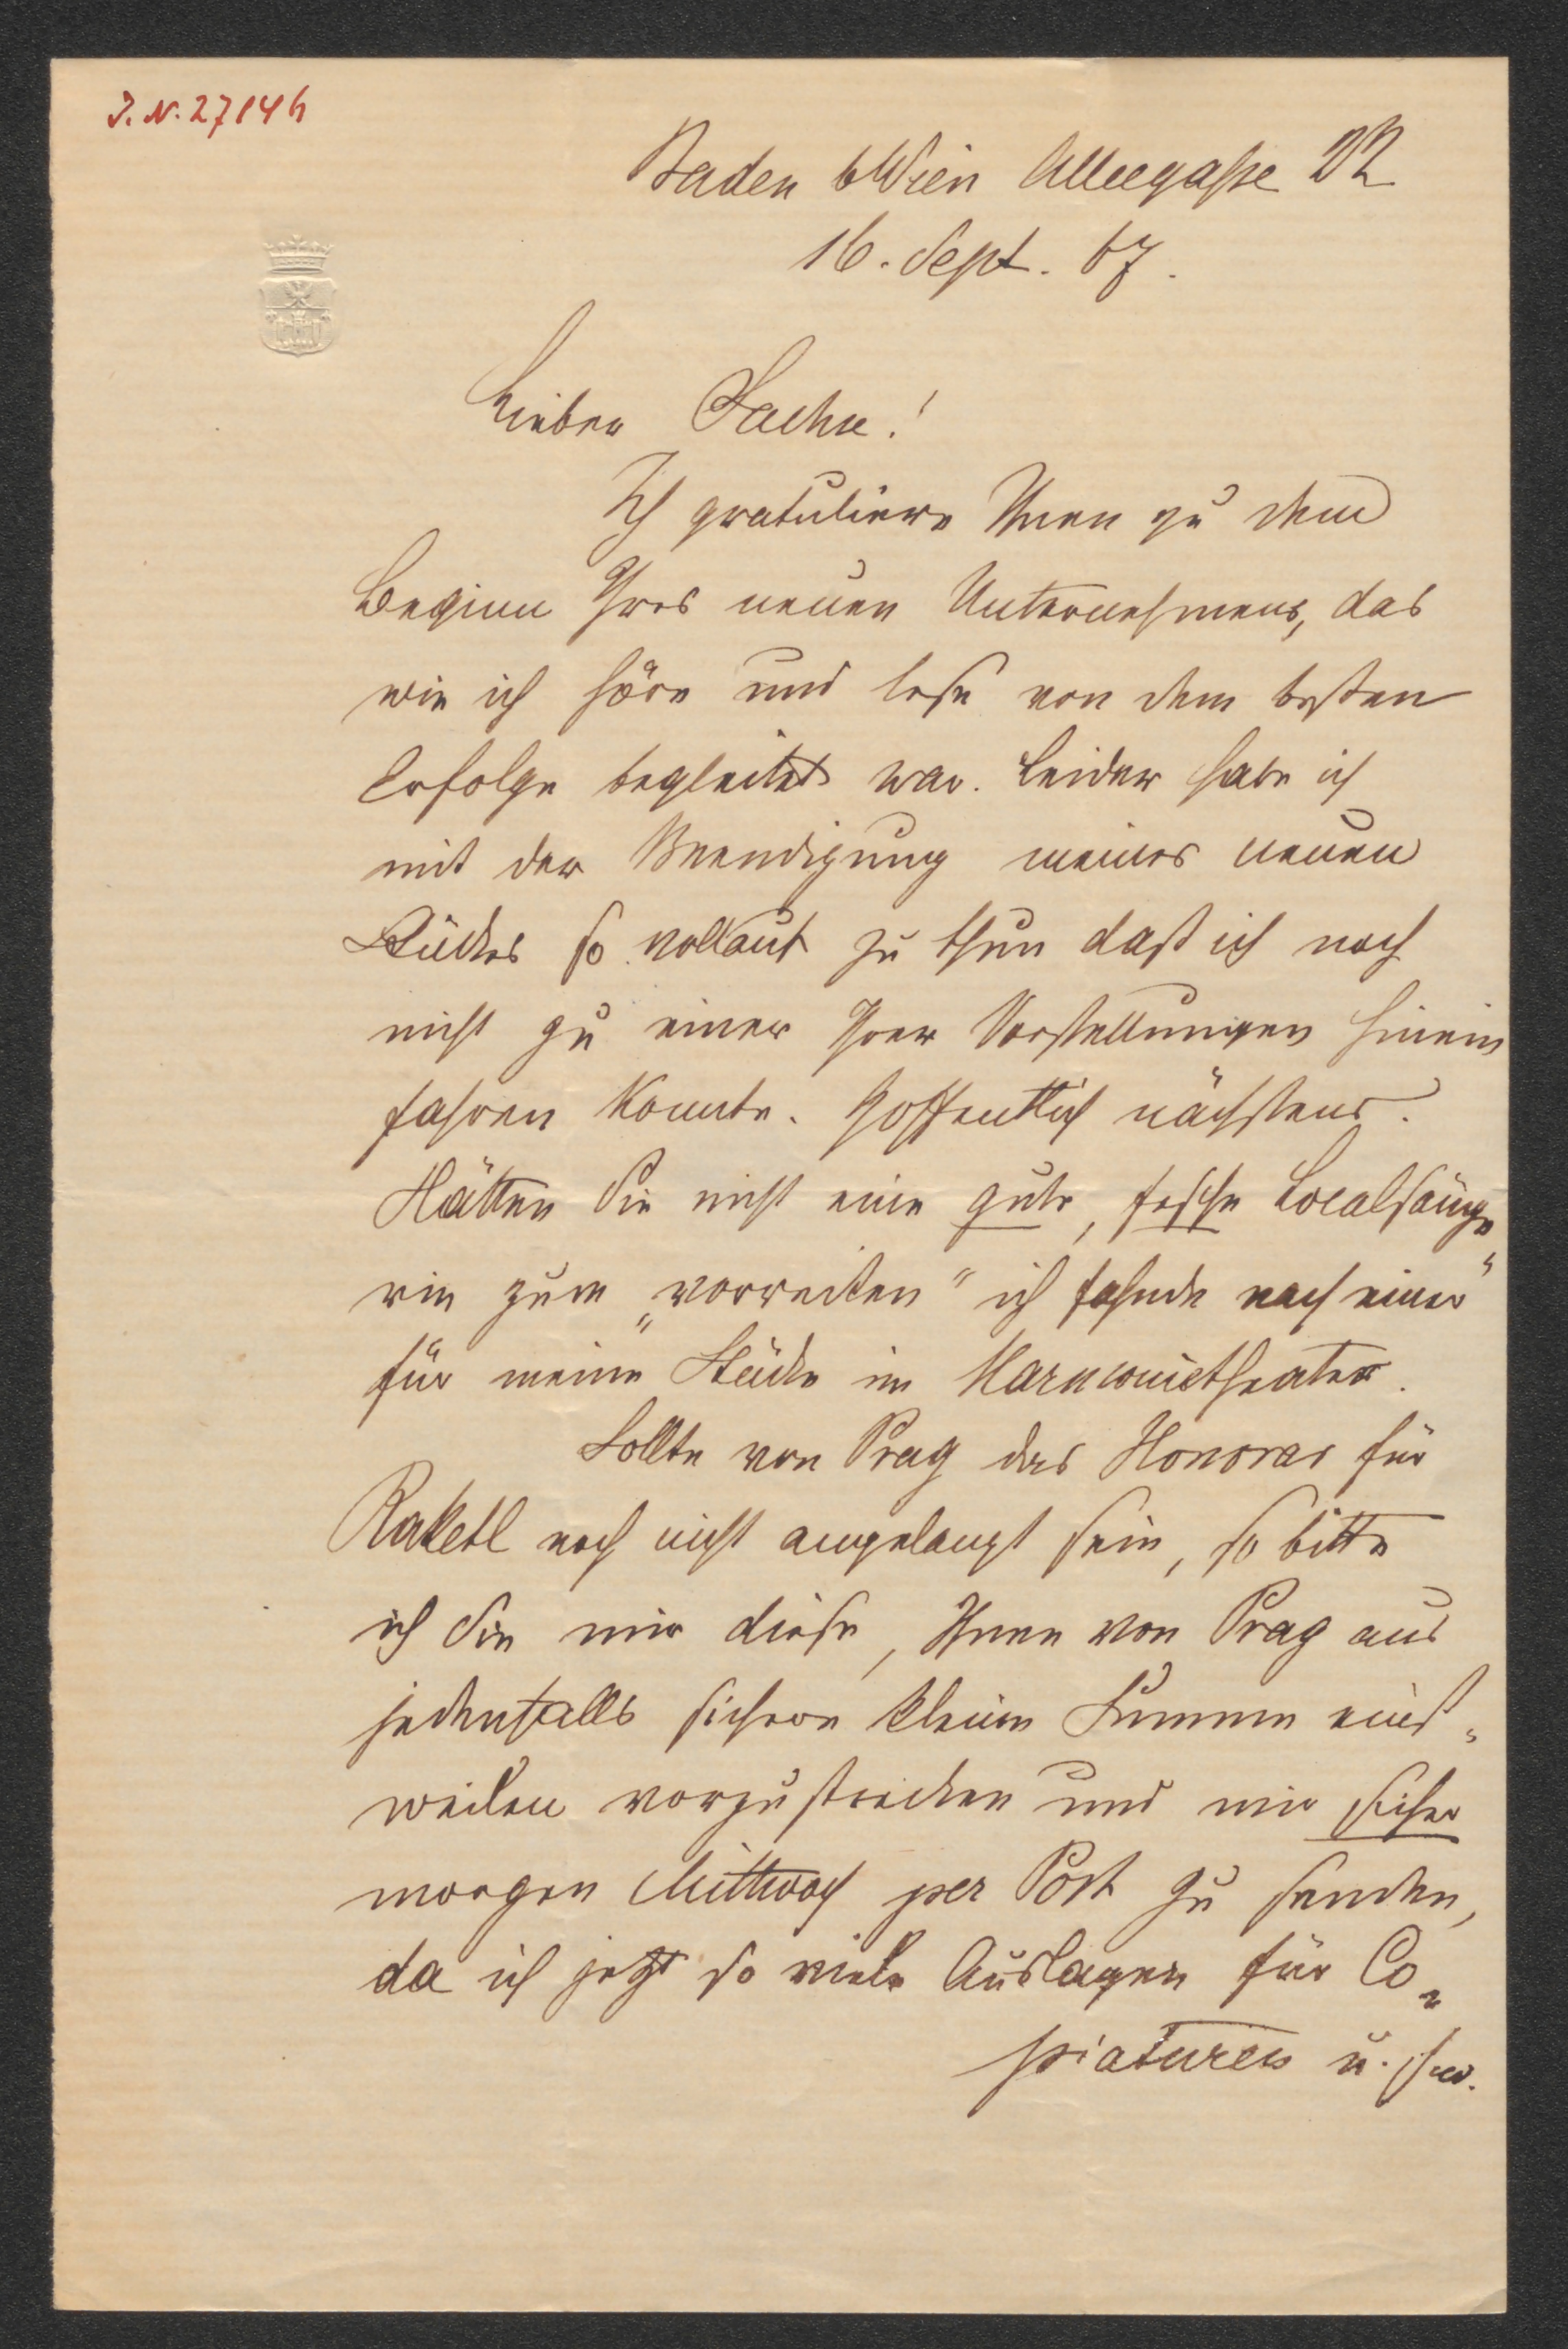 J. N. 27146
Baden b Wien Alleegasse 22
16. Sept. 67.
Lieber Sachse!
Ich gratuliere Ihnen zu dem
Beginn Ihres neuen Unternehmens, das
wie ich höre und lese von dem besten
Erfolge begleitet war. Leider habe ich
mit der Beendigung meines neuen
Stückes so vollauf zu thun daß ich noch
nicht zu einer Ihrer Vorstellungen hinein
fahren konnte. Hoffentlich nächstens.
Hätten Sie nicht eine gute, fesche Localsänge
rin zum „vorreiten" ich fahnde nach einer
für meine Stücke im Harmonietheater.
Sollte von Prag das Honorar für
Raketl noch nicht angelangt sein, so bitte
ich Sie mir diese, Ihnen von Prag aus
jedenfalls sichere kleine Summe einst=
weilen vorzustrecken und mir sicher
morgen Mittwoch per Post zu senden,
da ich jetzt so viele Auslagen für Co=
piaturen u. s w.